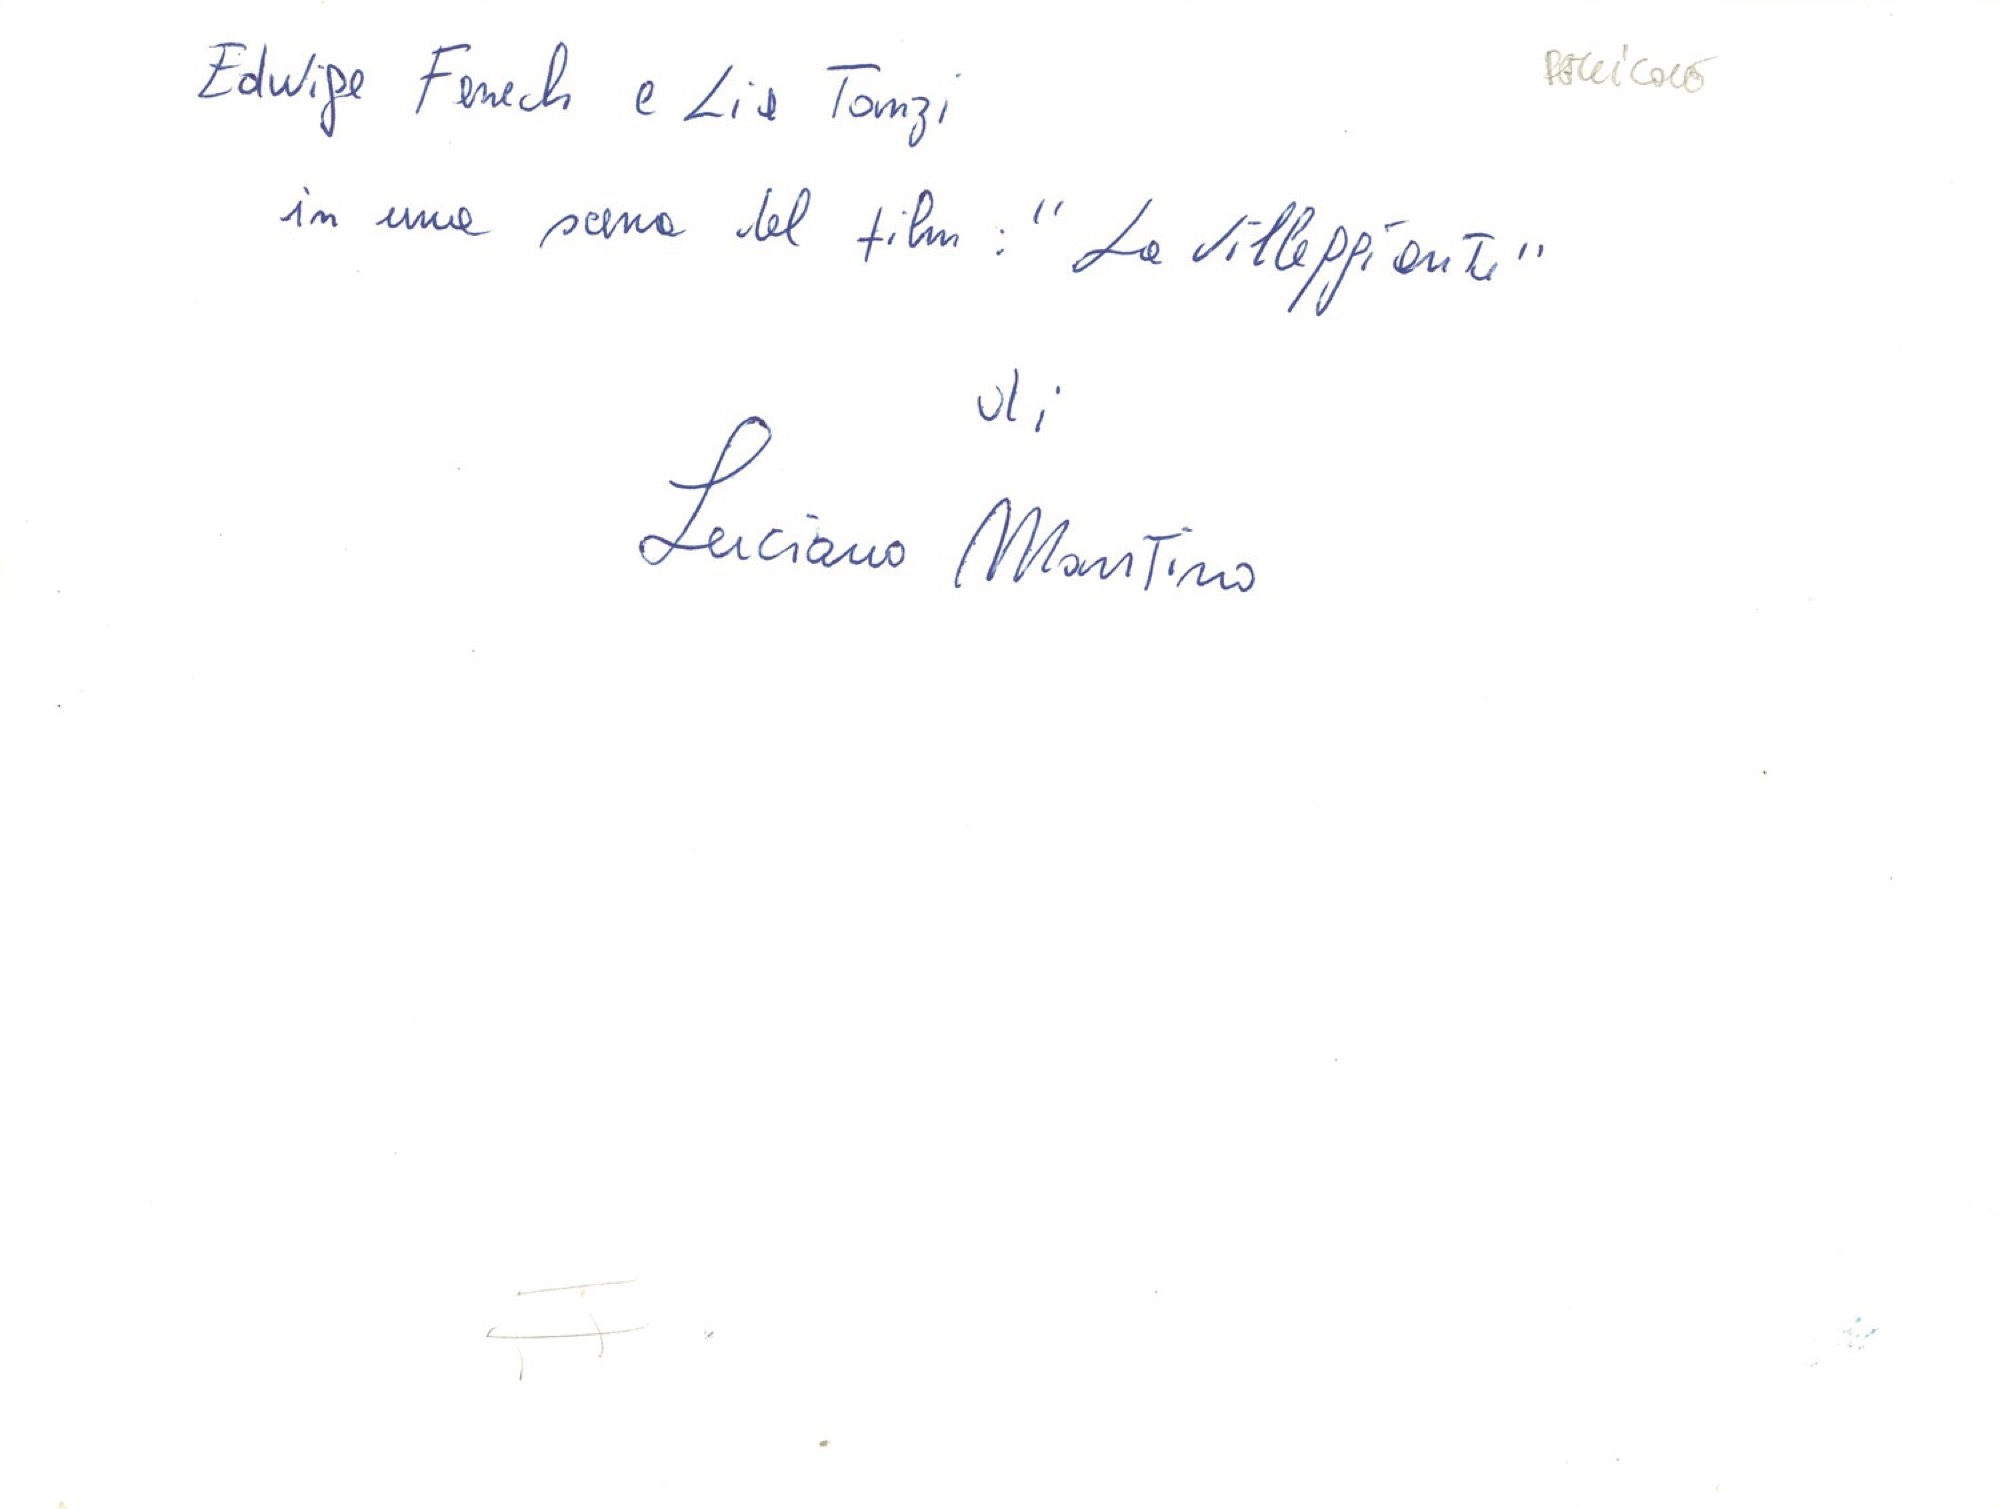 Edwige Fenech e Lia Tanzi
in una scena del film : "La villeggiante"
di
Luciano Martino